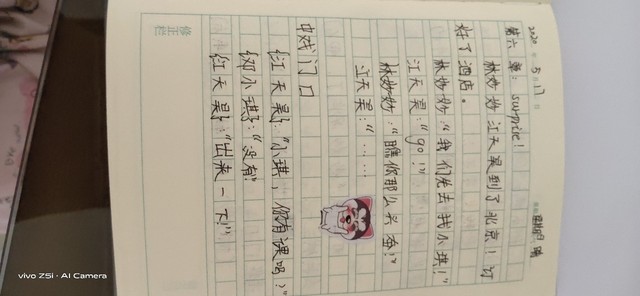 2020年5月17日
第六章：surprise!
林妙妙江天昊到了北京！订
好了酒店。
林妙妙：“我们先去找小琪！”
江天昊：“go！”
林妙妙：“瞧你那么兴奋！”
江天昊：“……
中戏门口
江天昊：“小琪，你有课吗？”
邓小琪：“没有”
江天昊：“出来一下！”
修正栏
vivo Z5i · AI Camera